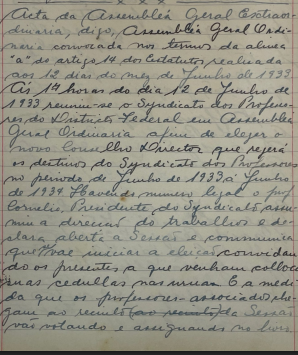 Acta da Assembléa Geral Extraor-
dinaria, digo, Assembléa Geral Ordi-
naria convocada nos termos da alinea
"a" do artigo 14 dos Estatutos realisada
aos 12 dias do mez de Junho de 1933
Ás horas do dia 12 de Junho de
1933 reuniu-se o Syndicato dos Professo-
res do Districto Federal em Assembléa
Geral Ordinaria afim de eleger o
novo Conselho Director que regerá
os destinos do Syndicato dos Professores
no periodo de Junho de 1933 á Junho
de 1934. Havendo numero legal o prof.
Cornelio, Presidente do Syndicato assu-
miu a direcção do trabalhos e de-
clara aberta a Sessão e communica
que vae iniciar a eleição convidan-
do os presentes a que venham colloca
as cedullas nas urnas. E a medi-
da que os professores associados che-
gam ao recinto (ao recinto) da Sessão
vão votando e assignando no livro